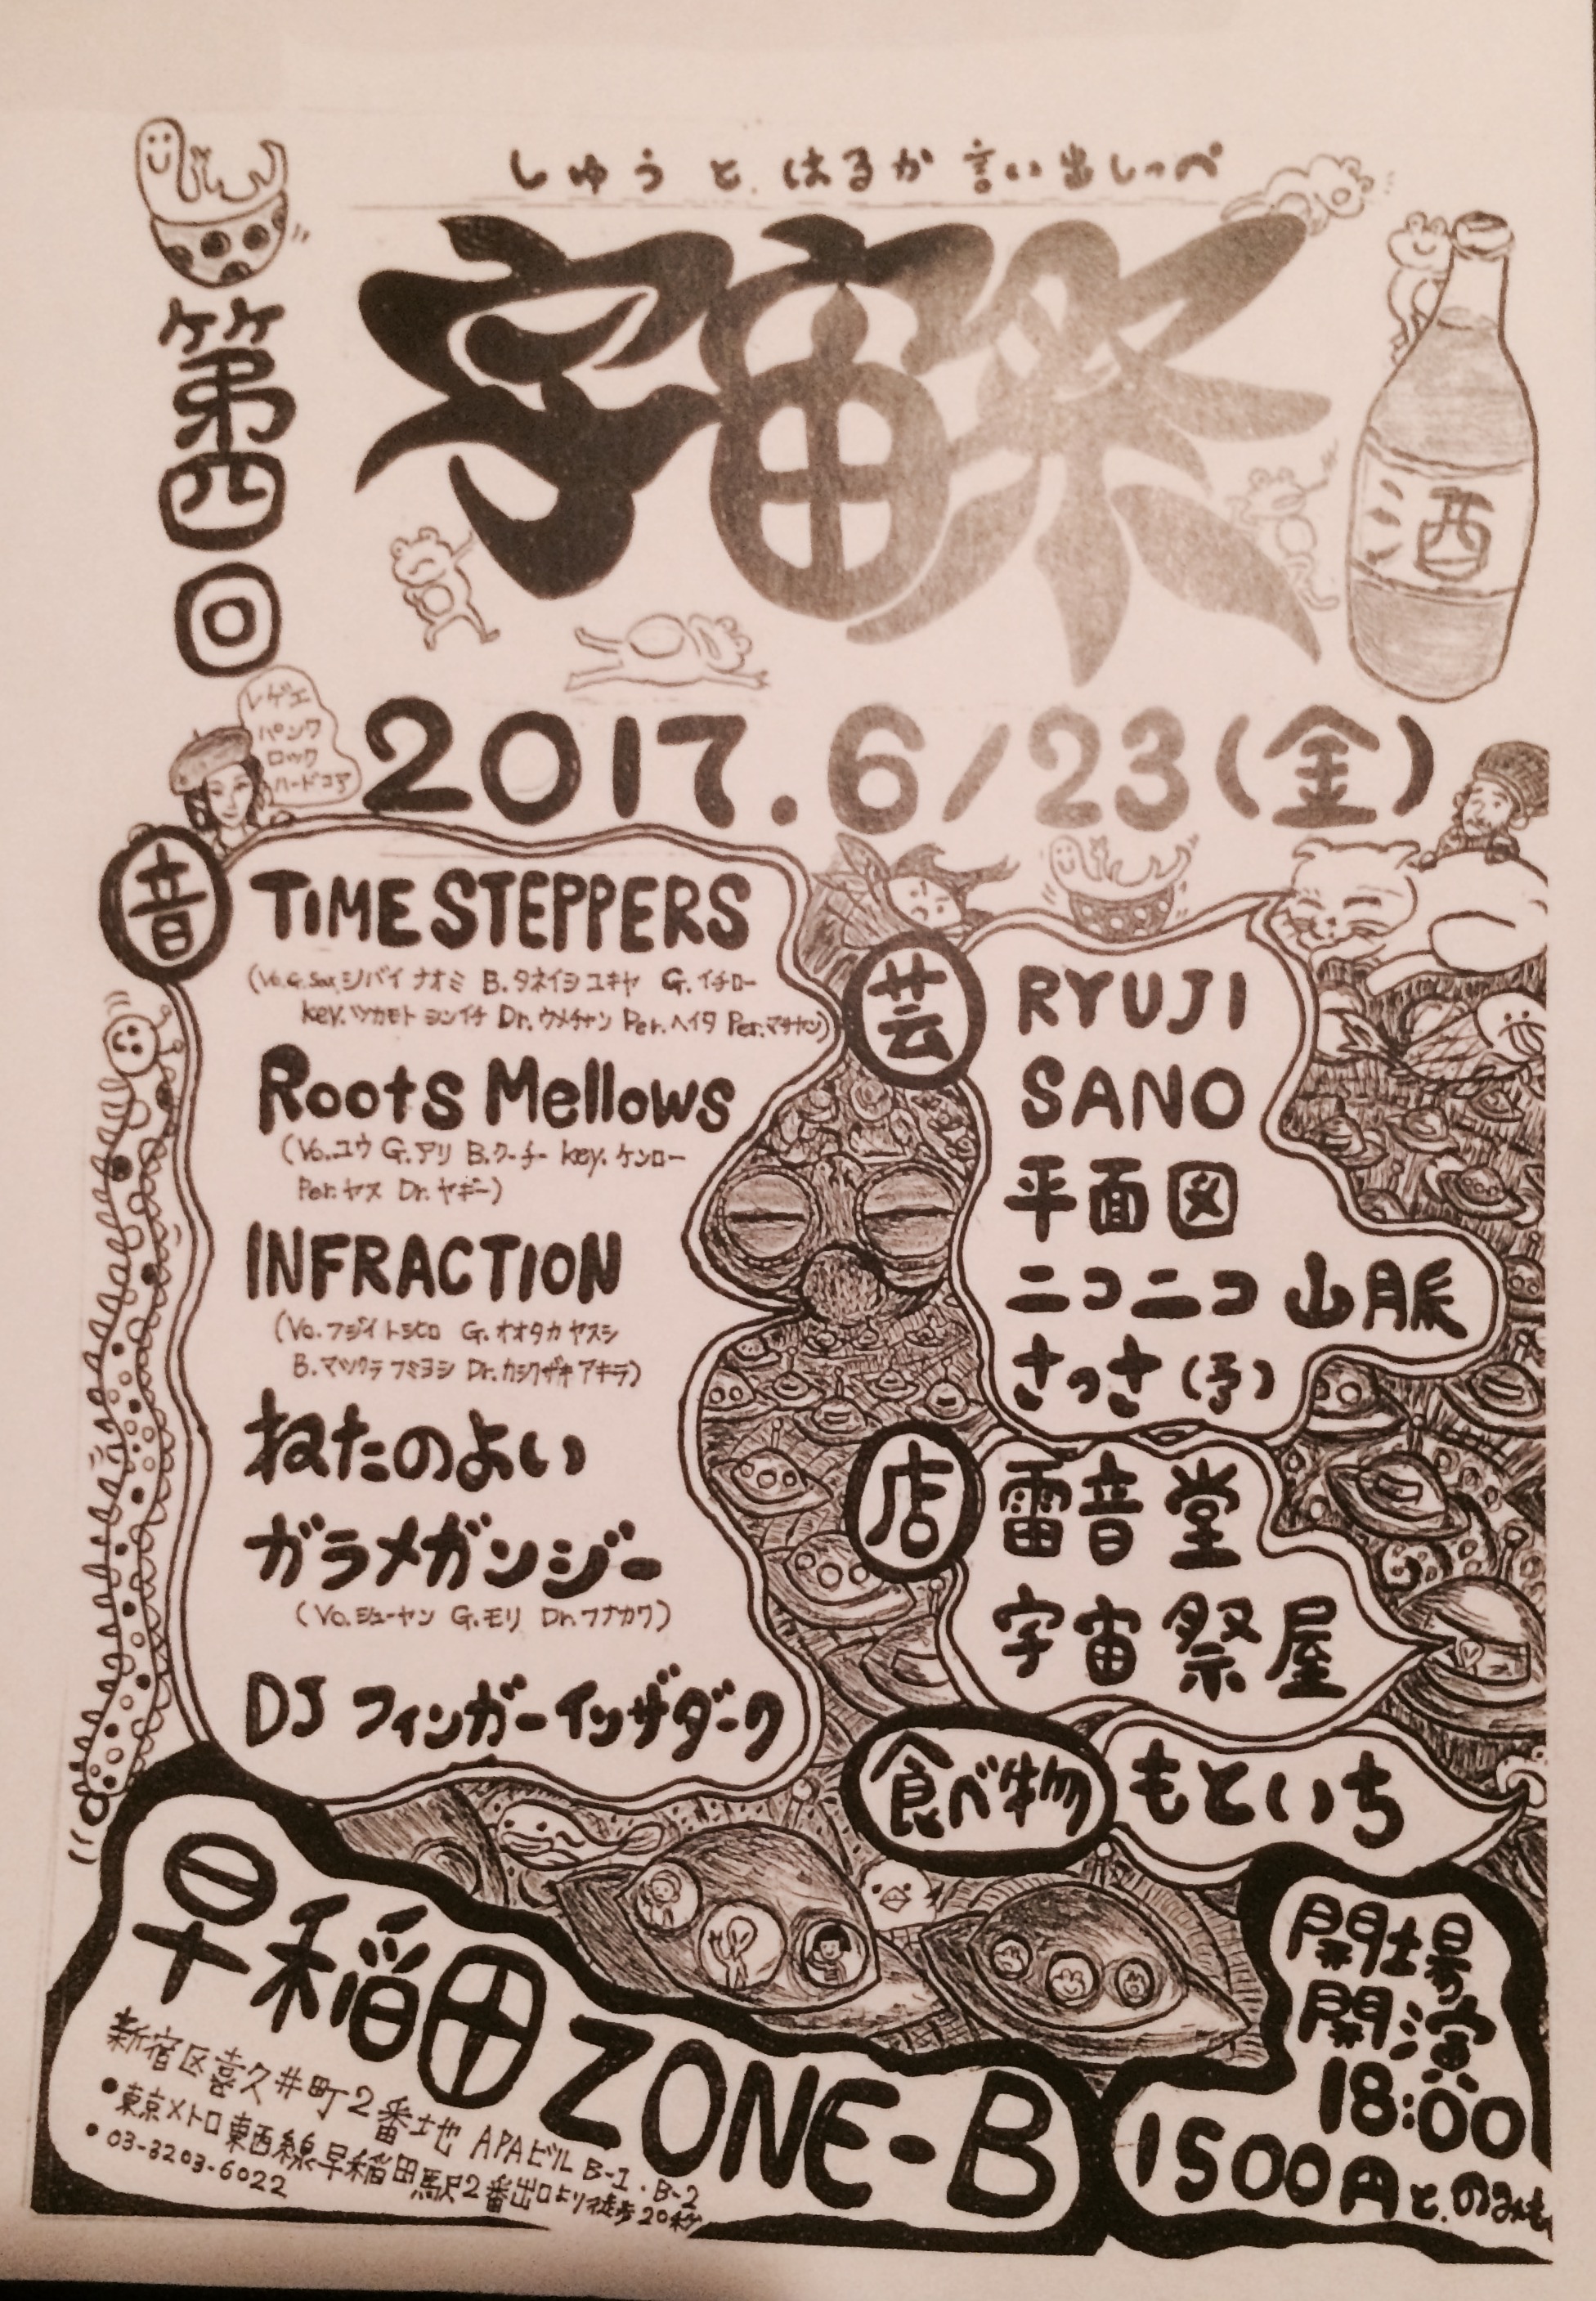 しゅうと はるか 言い出しっぺ
第四回
宇宙祭
酒
2017.6/23(金)
レゲエ
パンク
ロック
ハードコア
音
TIME STEPPERS
(Vo.G.Sax.シバイ ナオミ B.タネイシ ユキヤ G.イチロー
key.ツカモト シンイチ Dr.ウメチャン Per.ヘイタ Per.マサヤン)
Roots Mellows
(Vo.ユウ G.アリ B.クーチー key.ケンロー
Per.ヤス Dr.ヤギー)
INFRACTION
(Vo.フジイ トシヒロ G.オオタカ ヤスシ
B.マツクラ フミヨシ Dr.カシワザキ アキラ)
ねたのよい
ガラメガンジー
(Vo.シューヤン G.モリ Dr.フナカワ)
DJ フィンガーインザダーク
芸
RYUJI
SANO
平面図
ニコニコ山脈
さっさ(予)
店
雷音堂
宇宙祭屋
食べ物
もといち
早稲田ZONE-B
新宿区喜久井町2番地 APAビル B-1・B-2
●東京メトロ東西線早稲田駅2番出口より徒歩20秒
●03-3203-6022
開場
開演
18:00
1500円と.のみも